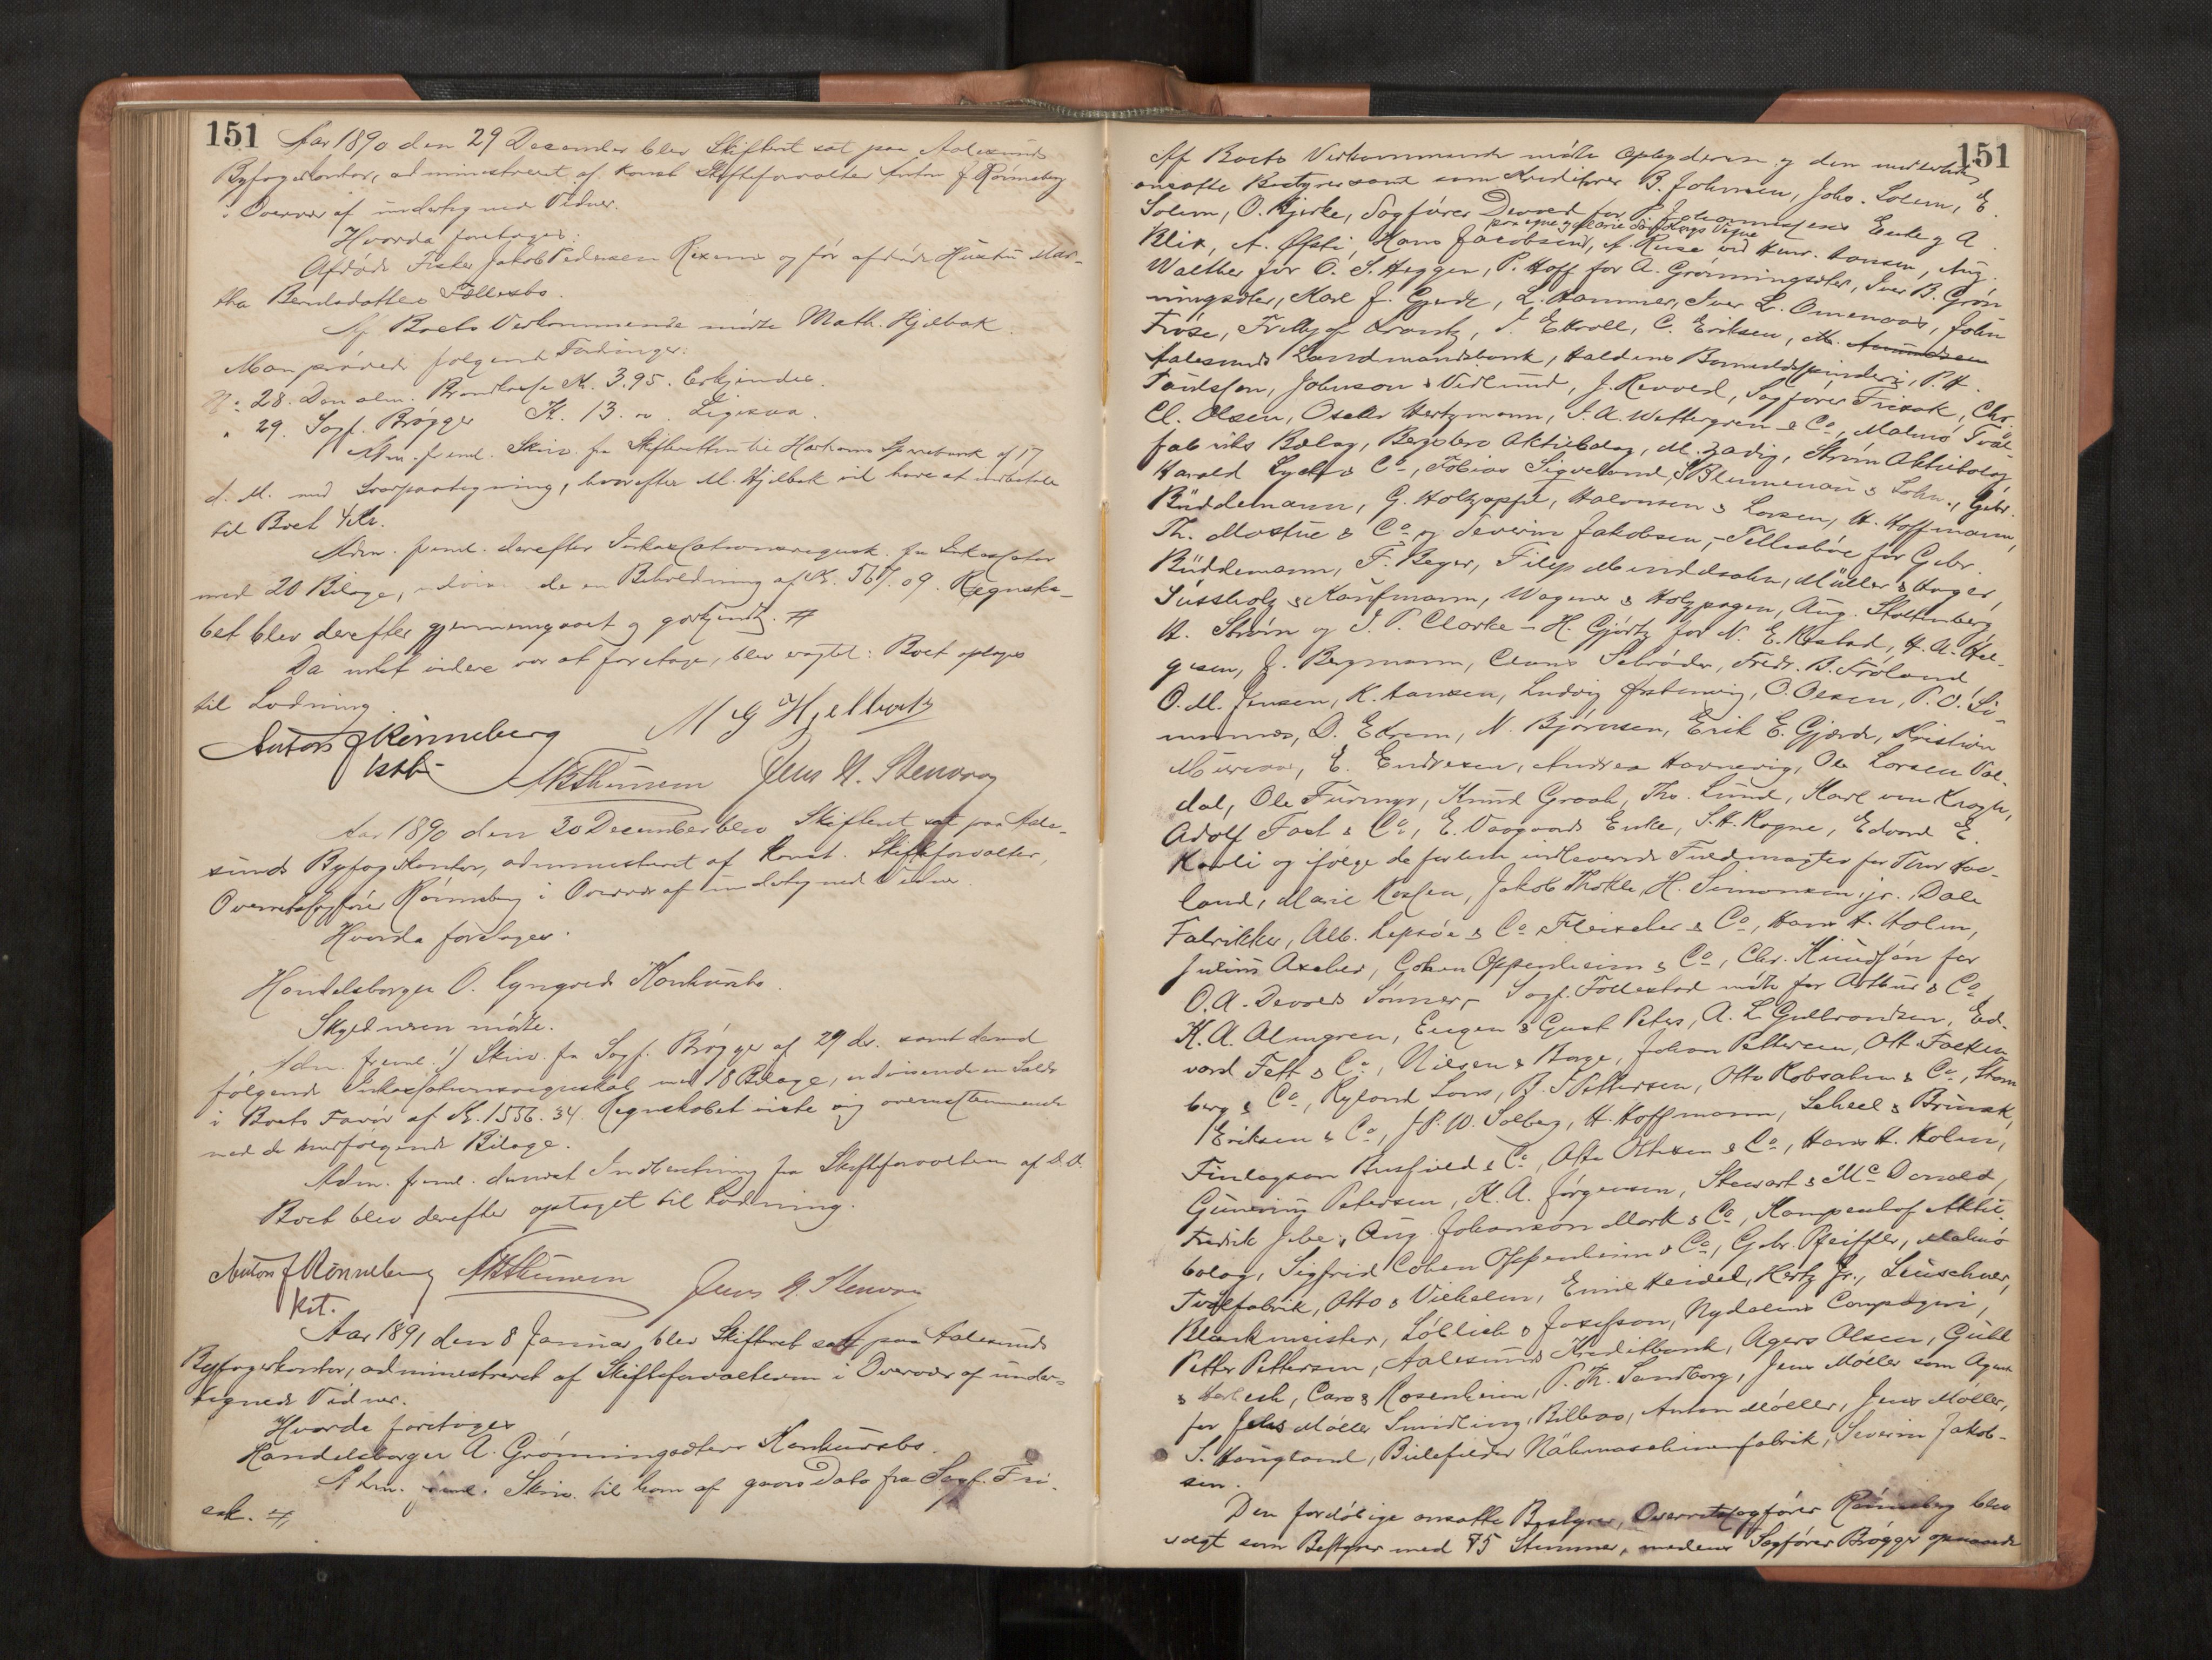 151 Aar 1890 den 29 December blev Skifteret sat paa Aalesunds
Byfogedkontor, administreret af konst Skifteforvalter Anton J. Rønneberg
i Overvær af undertegnede Vidner.
Hvorda foretages:
Afdøde Fisker Jakob Pedersen og før afdøde Hustru Mar-
tha Berntsdatters Fællesbo.
Af Boets Vedkommende mødte Math. Hjelbak.
Man prøvede følgende Fordringer:
No 28. Den alm. Brandkasse Kr. 3.95. Erkjendes.
" 29. Sagf. Brøgger Kr. 13. Ligesaa.
Adm. freml. Skriv. fra Skifteretten til Sparebank af 17
d. M. med Svarpaategning, hvorefter M. Hjelbak vil have at indbetale
til Boet 4 Kr.
Adm. freml. derefter Inkassationsregnsk. fra Inkassator
med 20 Bilage, udvis. de en Beholdning af Kr. 567.09. Regnska-
bet blev derefter gjennemgaaet og godkjendt. #
Da intet videre var at foretage, blev vagtet: Boet optages
til Lodning.
Anton J Rønneberg M G Hjelbak
kst.
Jens N. Stenvaag
Aar 1890 den 30 December blev Skifteret sat paa Aale-
sunds Byfogedkontor, administreret af konst. Skifteforvalter,
Overretssagfører Rønneberg i Overvær af undertegnede Vidner.
Hvorda foretages:
Handelsborger O. Lyngveds Konkursbo.
Skyldneren mødte.
Adm. freml. 1/ Skriv. fra Sagf. Brøgger af 29 ds. samt dermed
følgende Inkassationsregnskab med 18 Bilage, udvisende en Saldo
i Boets Favør af Kr. 1556.34. Regnskabet viste sig overensstemmende
med de medfølgende Bilage.
Adm. freml. dernæst Indberetning fra Skifteforvalteren af D. D.
Boet blev derefter optaget til Lodning.
Anton J Rønneberg Jens N. Stenvaag
kst.
Aar 1891 den 8 Januar blev Skifteret sat paa Aalesunds
Byfogedkontor, administreret af Skifteforvalteren i Overvær af under-
tegnede Vidner.
Hvorda foretoges
Handelsborger A. Grønningsæters Konkursbo.
Adm. freml. Skriv. til ham af gaars Dato fra Sagf. Fri-
sak. #,
151
Af Boets Vedkommende mødte Opbyderen og den midlertidig
ansatte Bestyrer samt som Kreditorer B. Johnsen, Johs. Solem, E.
Solem, O. Bjerke, Sagfører Devold for P. Johannessens Enke og A.
paa egne og Marie Vegne
Blix, A. Øfsti, Hans Jacobsen, A. Ruse ved Hansen, Aug.
Walther for O. S. Heggen, P. Hoff for A. Grønningsæter, Iver B. Grøn
ningsæter, Karl J. Gjerde, L. Hammer, Iver L. Omenaas, John
Frøse, Krantz, J. Ekroll, C. Eriksen, M. Amundsen
Aalesunds Landmandsbank, Haldens Bomuldsspinderi, P. H.
Johnson & Vidlund, J. Revold, Sagfører Frisak, Chr.
Cl. Olsen, Oscar Hertzmann, J. A. Wettergren & Co, Malmø Tvål-
fabriks Bolag, Aktiebolag, M. Zadig, Strøm Aktiebolag,
Harald Lyche & Co, Tobias Sigvelund, S. Blumenau & Sohn, Gebr.
Büddemann, G. Holtzapfel, Halvorsen & Larsen, H. Hoffmann,
Th. Mostue & Co og Severin Jakobsen, – Tellesbøe for Gebr.
Büddemann, F. Beyer, Filip Mendelsohn, Müller & Hager,
Süssholz & Kaufmann, Wagener & Holzpagen, Aug. Stoltenberg
A. Strøm og J. P. Clarke – H. Gjørtz for N. E. Kostad, H. A. Hel-
gesen, J. Bergmann, Claus Schrøder, Fredr. B. Frøland
O. M. Jensen, K. Hansen, Ludvig Østensvig, O. Olsen, P. O. Li-
D. Ekrem, N. Bjørnsen, Erik E. Gjærde, Kristian
E. Endresen, Andreas Havnevig, Ole Larsen Val-
dal, Ole Furmyr, Knud Graah, Tho. Lund, Karl von Krogh,
Adolf Fast & Co, E. Vaagaards Enke, S. H. Rogne, Edvard E.
Karli og ifølge de forlem indleverede Fuldmagter for Thor Hav-
land, Marie Jakob Thokle, H. Simonsen jr. Dale
Fabrikker, Alb. Lepsøe & Co Fleischer & Co, Hans H. Holm,
Julius Axeber, Cohen Oppenheim & Co, Chr. Knudsøn for
O. A. Devolds Sønner, – Sagf. Follestad mødte for Arthur & Co,
K. A. Almgren, Eugen & Gust Peters, A. L. Gulbrandsen, Ed-
vard Fett & Co, Nielsen & Borge, Johan Pettersen, Ott Falken
berg & Co, Ryland Sons, B. J. Pettersen, Otto Robsahm & Co, Strøm
Eriksen & Co, J. P. W. Solberg, H. Hoffmann, Scheel & Brinck,
Finlayson Bousfield & Co, Otto Ottesen & Co, Hans H. Holm,
Gunerius Pettersen, K. A. Jørgensen, Stewart & Mc Donald,
Fredrik Jebe, Aug. Johanson Mark & Co, Kampenhof Aktie-
bolag, Sigfrid Cohen Oppenheim & Co, Gebr. Pfeiffer, Malmø
Tvålfabrik, Otto & Vilhelm, Emil Heidel, Hertz Jr., Leuschner,
Blankmeister, Löblich & Josefson, Nydalens Compagni,
Petter Pettersen, Aalesunds Kreditbank, Agers Olsen, Gull
& Caro & Rosenheim, P. Th. Sandborg, Jens Møller som Agent
for Jens Møller Smidling, Bilbao, Anton Møller, Jens Møller,
S. Haugland, Bielefelder Nähmaschinenfabrik, Severin Jakob-
sen.
Den foreløbige ansatte Bestyrer, Overretssagfører Rønneberg blev
valgt som Bestyrer med 85 Stemmer, medens Sagfører Brøgger opnaaede